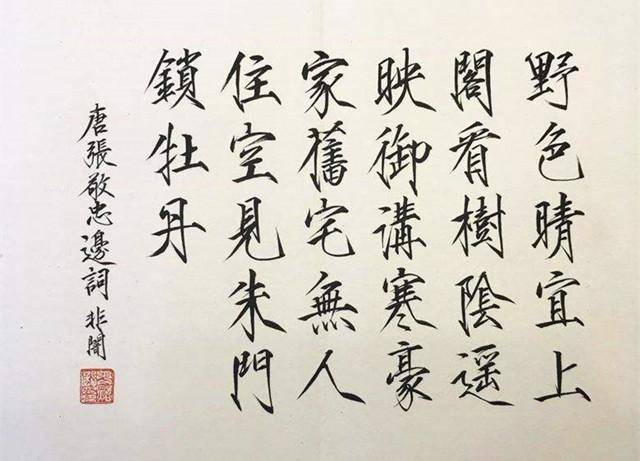 野色晴宜上
閣看樹陰遥
映御溝寒豪
家舊宅無人
住空見朱門
鎖牡丹
唐張敬忠邊詞非闇